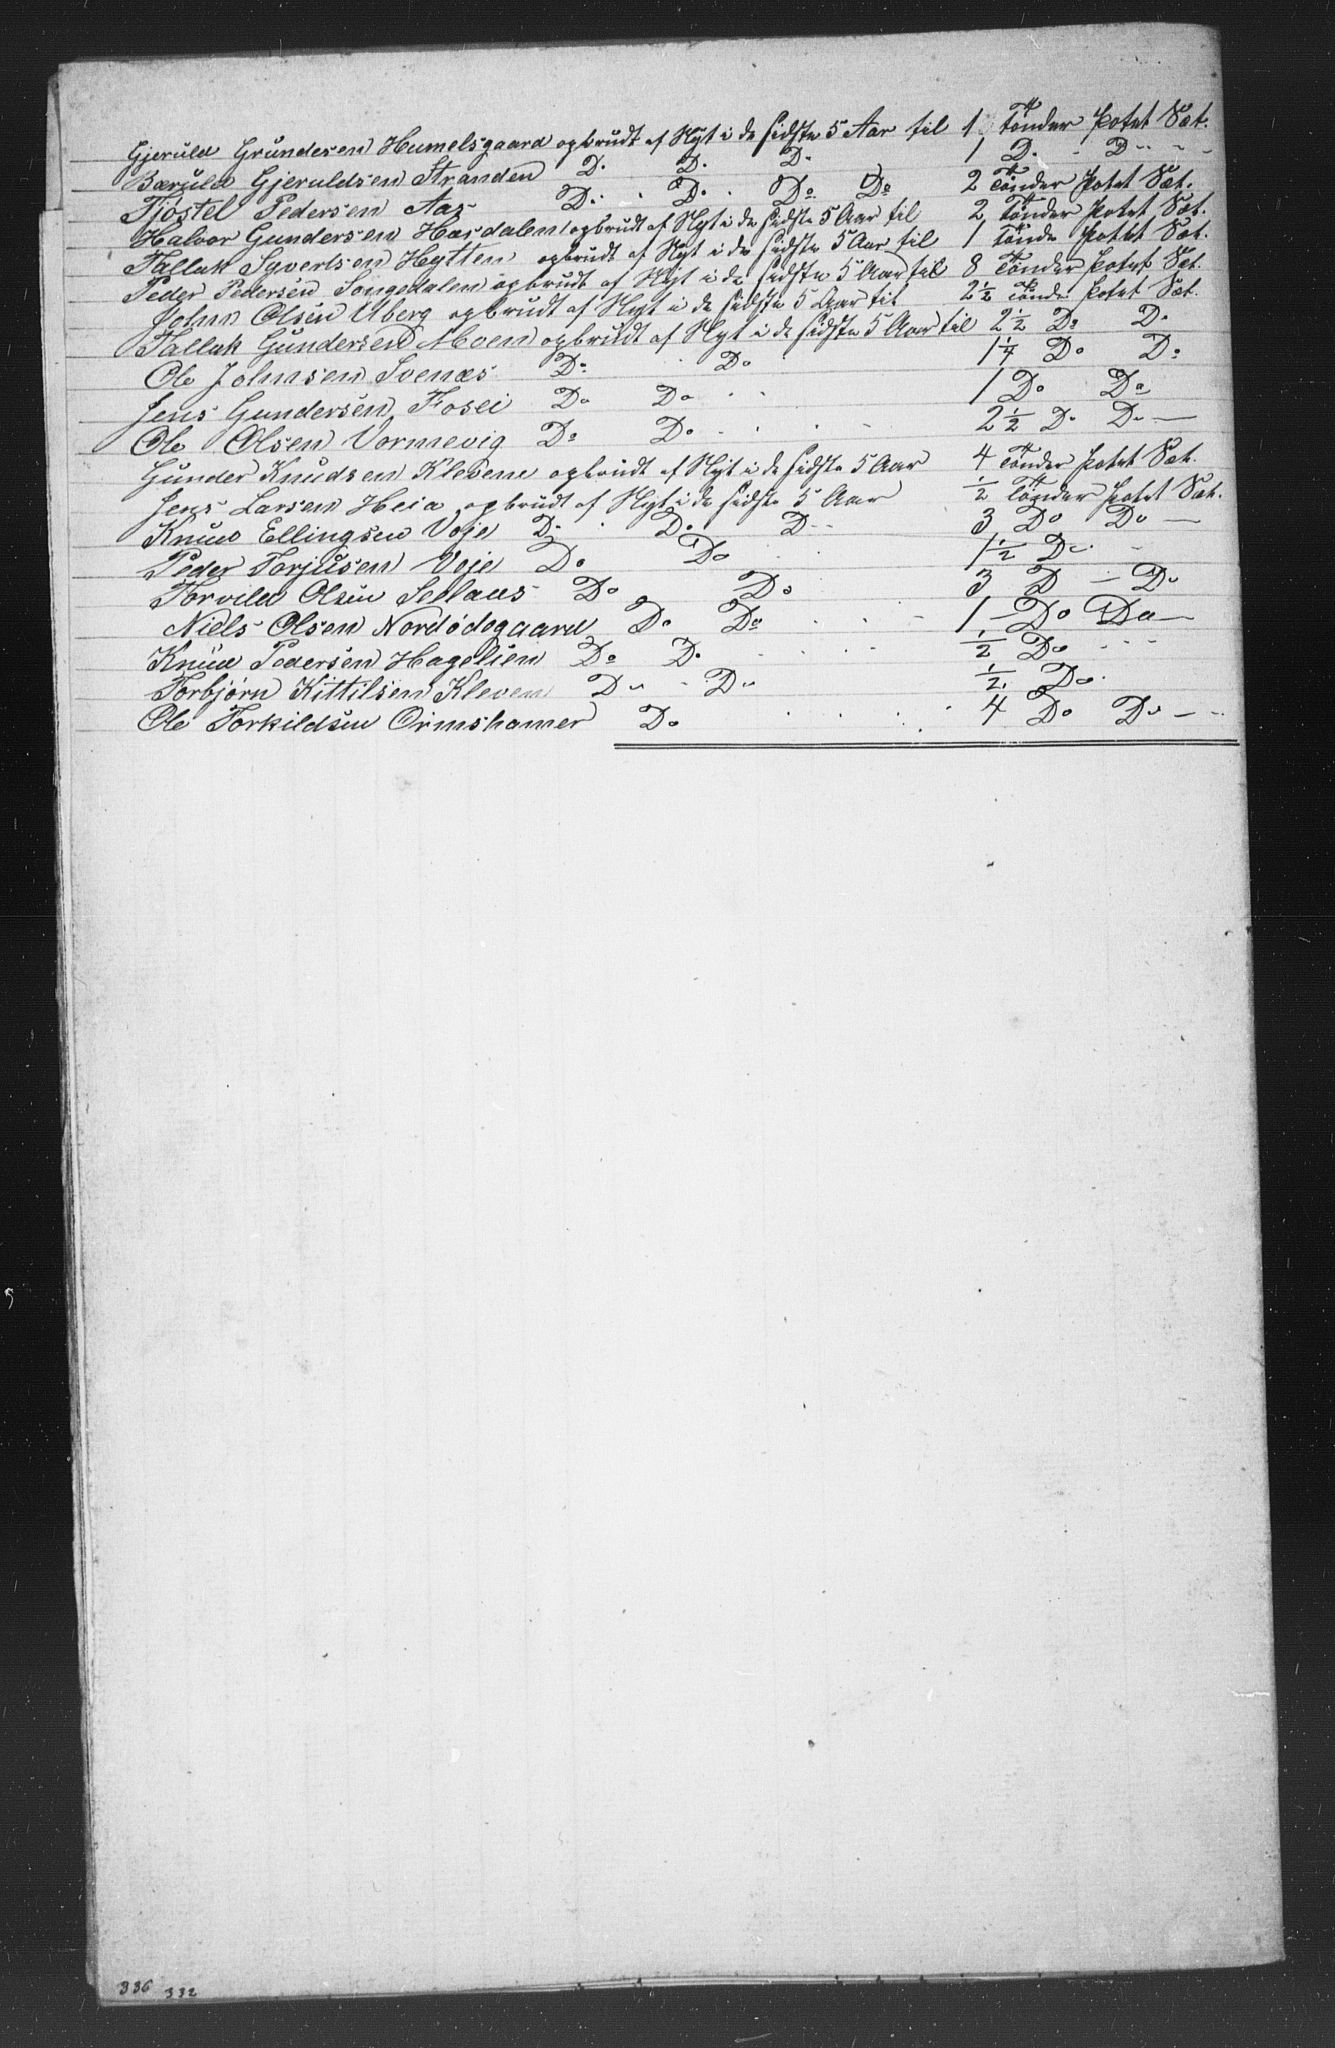 Gjeruld Grundesen Humelsgaard opbrudt af Nyt i de sidste 5 Aar til 1 Tønder Potet Sæt.
Bæruld Gjeruldsen Stranden D. D. D. 1 D. D.
Tjøstel Pedersen Aas D. D. Do Do 2 Tønder Potet Sæt.
Halvor Gundersen Hasdalen opbrudt af Nyt i de sidste 5 Aar til 2 Tønder Potet Sæt.
Tallak Syvertsen Hytten opbrudt af Nyt i de sidste 5 Aar til 1 Tønde Potet Sæt.
Peder Pedersen Songedalen opbrudt af Nyt i de sidste 5 Aar til 8 Tønder Potet Sæt.
John Olsen Uberg opbrudt af Nyt i de sidste 5 Aar til 2½ Tønde Potet Sæt.
Tallak Gundersen Moen opbrudt af Nyt i de sidste 5 Aar til 2½ Do D.
Ole Johnsen Svenæs Do Do 1¼ Do Do
Jens Gundersen Fosei Do Do 1 Do Do
Ole Olsen Vormevig Do Do 2½ D. D. —
Gunder Knudsen Klevene opbrudt af Nyt i de sidste 5 Aar 4 Tønder Potet Sæt.
Jens Larsen Heia opbrudt af Nyt i de sidste 5 Aar ½ Tønder Potet Sæt.
Knud Ellingsen Voje D. D. D. 3 Do Do —
Peder Torjusen Voje Do Do 1½ D.
Torvild Olsen Sellaus Do Do 3 D — Do
Niels Olsen Nordødegaard Do Do 1 — Do Do —
Knud Pedersen Hagelien Do D. ½ Do
Torbjørn Kittilsen Kleven Do Do ½ Do
Ole Torkildsen Ormshamer Do 4 Do Do —
336 332